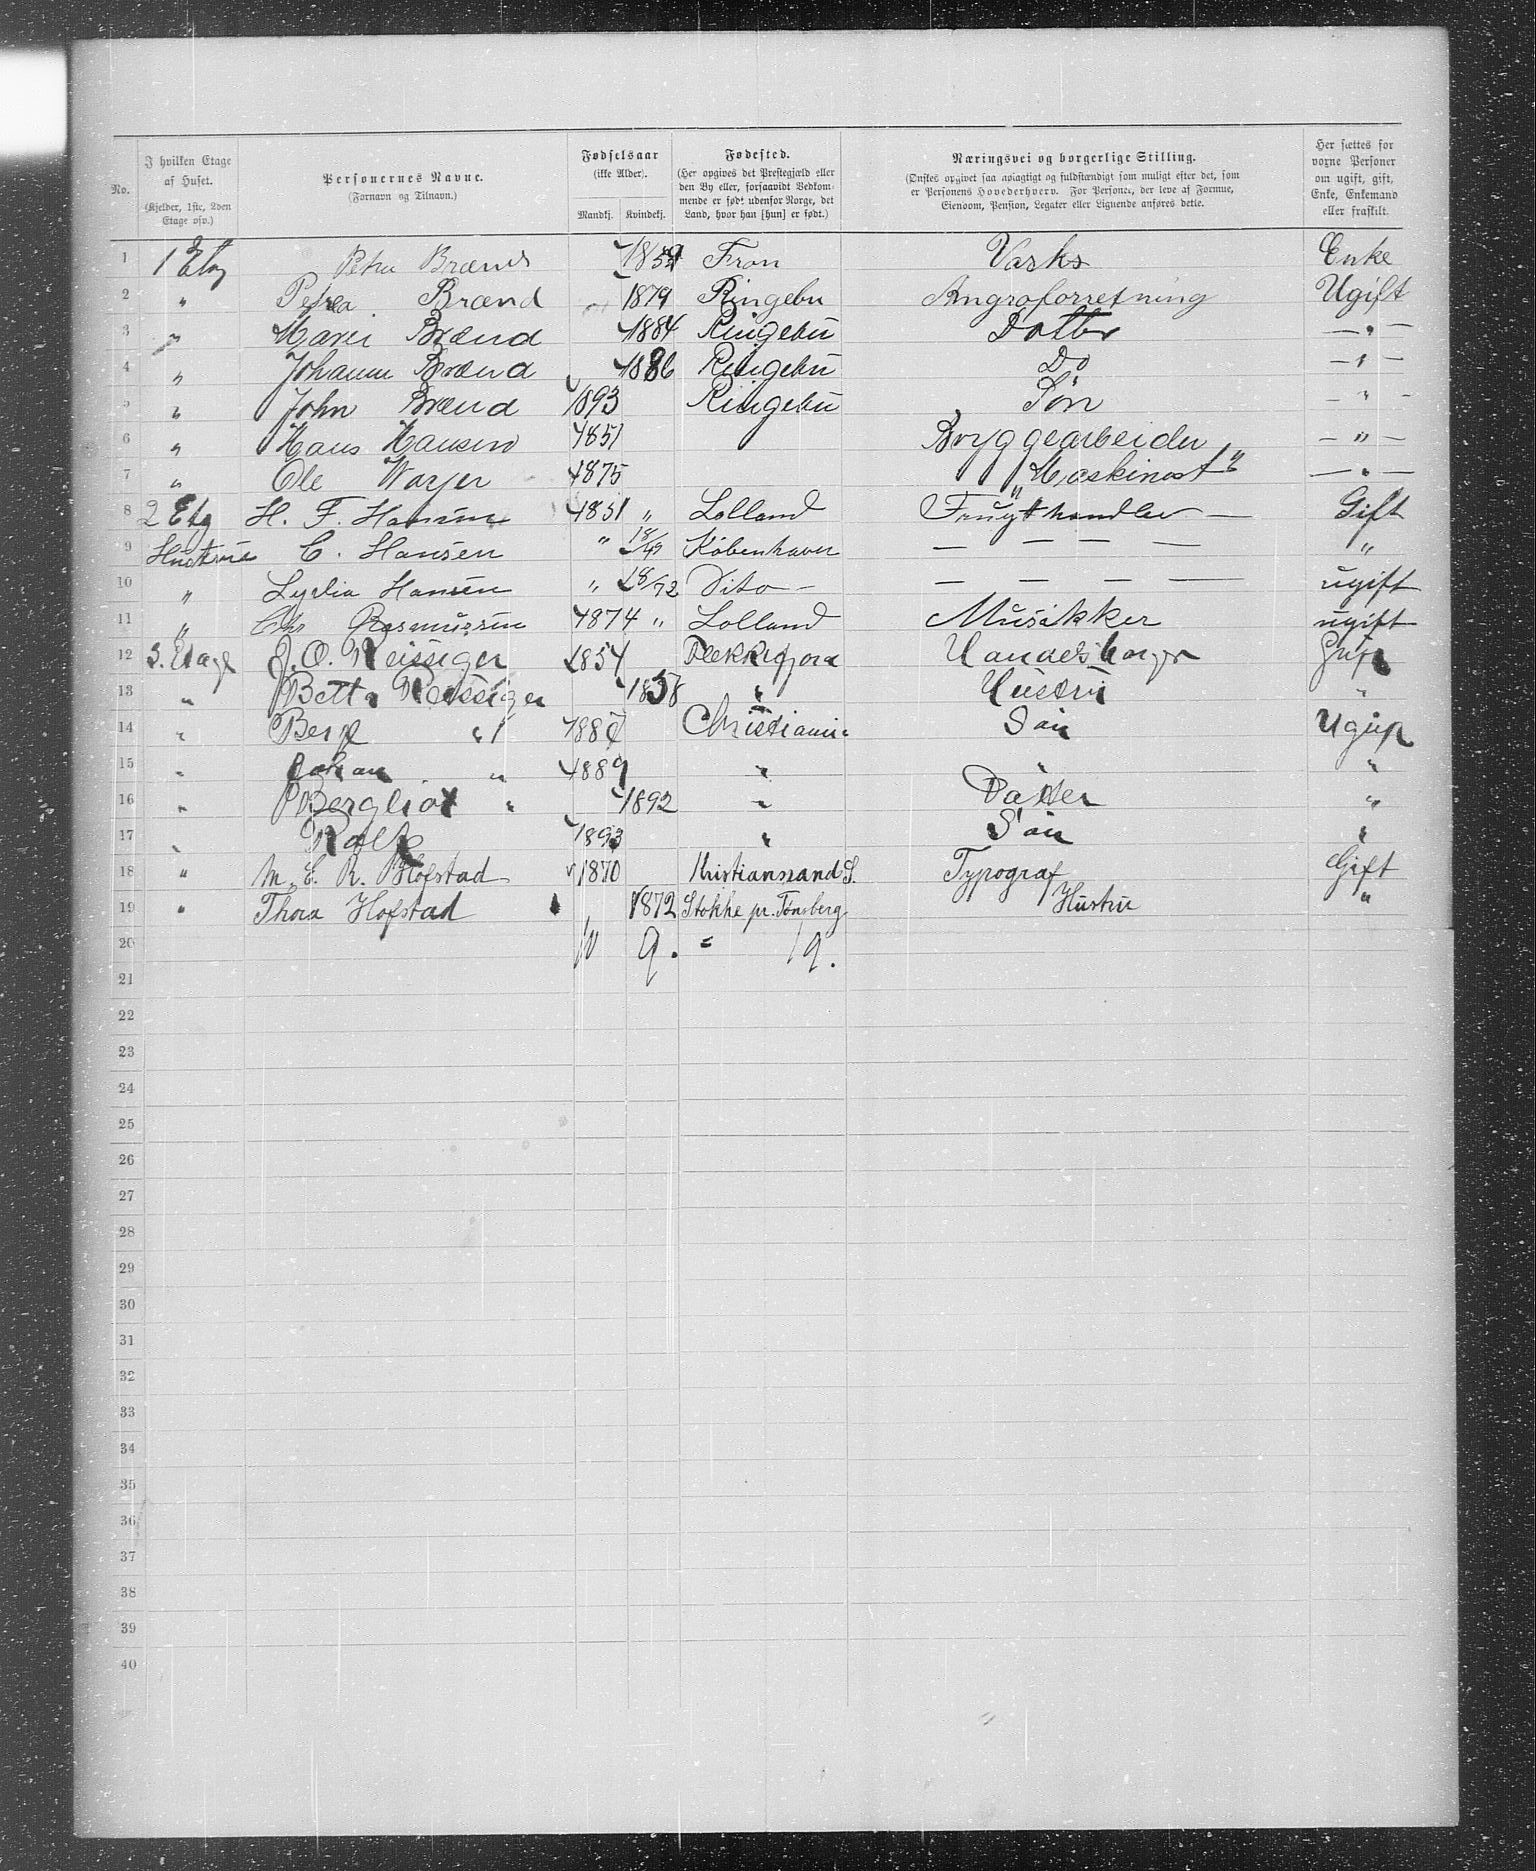 No. I hvilken Etage af Huset. (Kjelder, 1ste, 2den Etage osv.) Personernes Navne. (Fornavn og Tilnavn.) Fødselsaar (ikke Alder). Mandkj. Kvindekj. Fødested. (Her opgives det Prestegjæld eller den By eller, forsaavidt Bedkommende er født udenfor Norge, det Land, hvor han [hun] er født.) Næringsvei og borgerlige Stilling. (Ønskes opgivet saa nøiagtigt og fuldstændigt som muligt efter det, som er Personens Hovederhverv. For Personer, der leve af Formue, Eiendom, Pension, Legater eller Lignende anføres dette. Her sættes for voxne Personer om ugift, gift, Enke, Enkemand eller fraskilt.
1 1 Etg Petra Brænd 1854 Fron Vasks Enke
2 " Petrea Brænd 1879 Ringebu Angroforretning Ugift
3 " Maren Brænd 1884 Ringebu Dotter — " —
4 " Johanne Brænd 1886 Ringebu Do — " —
5 " John Brænd 1893 Ringebu Søn — " —
6 " Hans Hansen 1851 Bryggearbeider — " —
7 " Ole 1875 " Maskinost " — " —
8 2 Etg H. F. Hansen 1851 " Lolland Frugthandler — Gift
9 Hustrue C. Hansen " 18/49 København — — — — "
10 " Lydia Hansen " 18/72 Dito — — — — — ugift
11 " Chr Rasmussen 1874 " Lolland Musikker ugift
12 3. Etage J. O. Reissiger 1854 Flekkefjord Handelsborger Gift
13 " Betta Reissiger 1858 " Hustru "
14 " Berp " 188 Christiania Søn Ugift
15 " Johan " 1889 " " "
16 " Bergliot " 1892 " Datter "
17 " Rolf 1893 " Søn "
18 " M. E. R. Hofstad 1870 Kristianssand S. Typograf Gift
19 " Thora Hofstad 1872 Stokke pr. Tønsberg Hustru "
20 10 9. = 19.
21
22
23
24
25
26
27
28
29
30
31
32
33
34
35
36
37
38
39
40